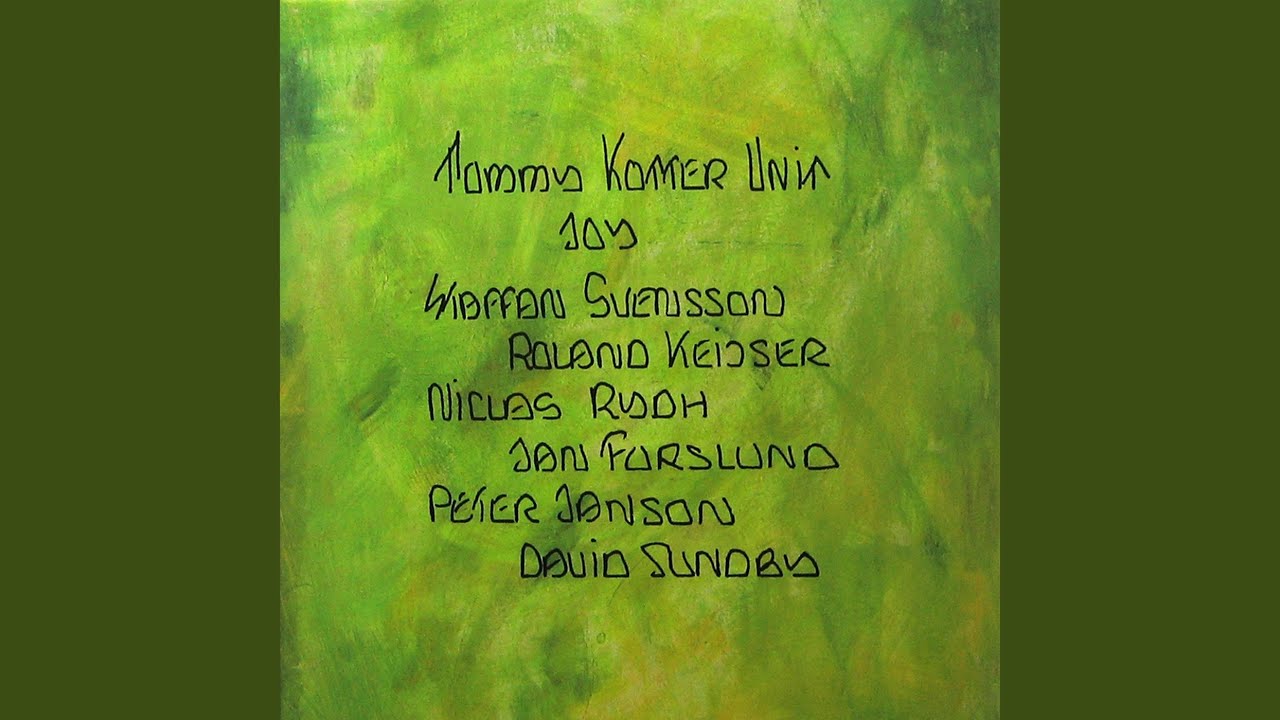 Tommy KOTTER UNiT
JOY
STAFFAN SVENSSON
ROLAND KEIJSER
NiCLAS RYDH
JAN FORSLUND
PETER JANSON
DAViD SUNDBY